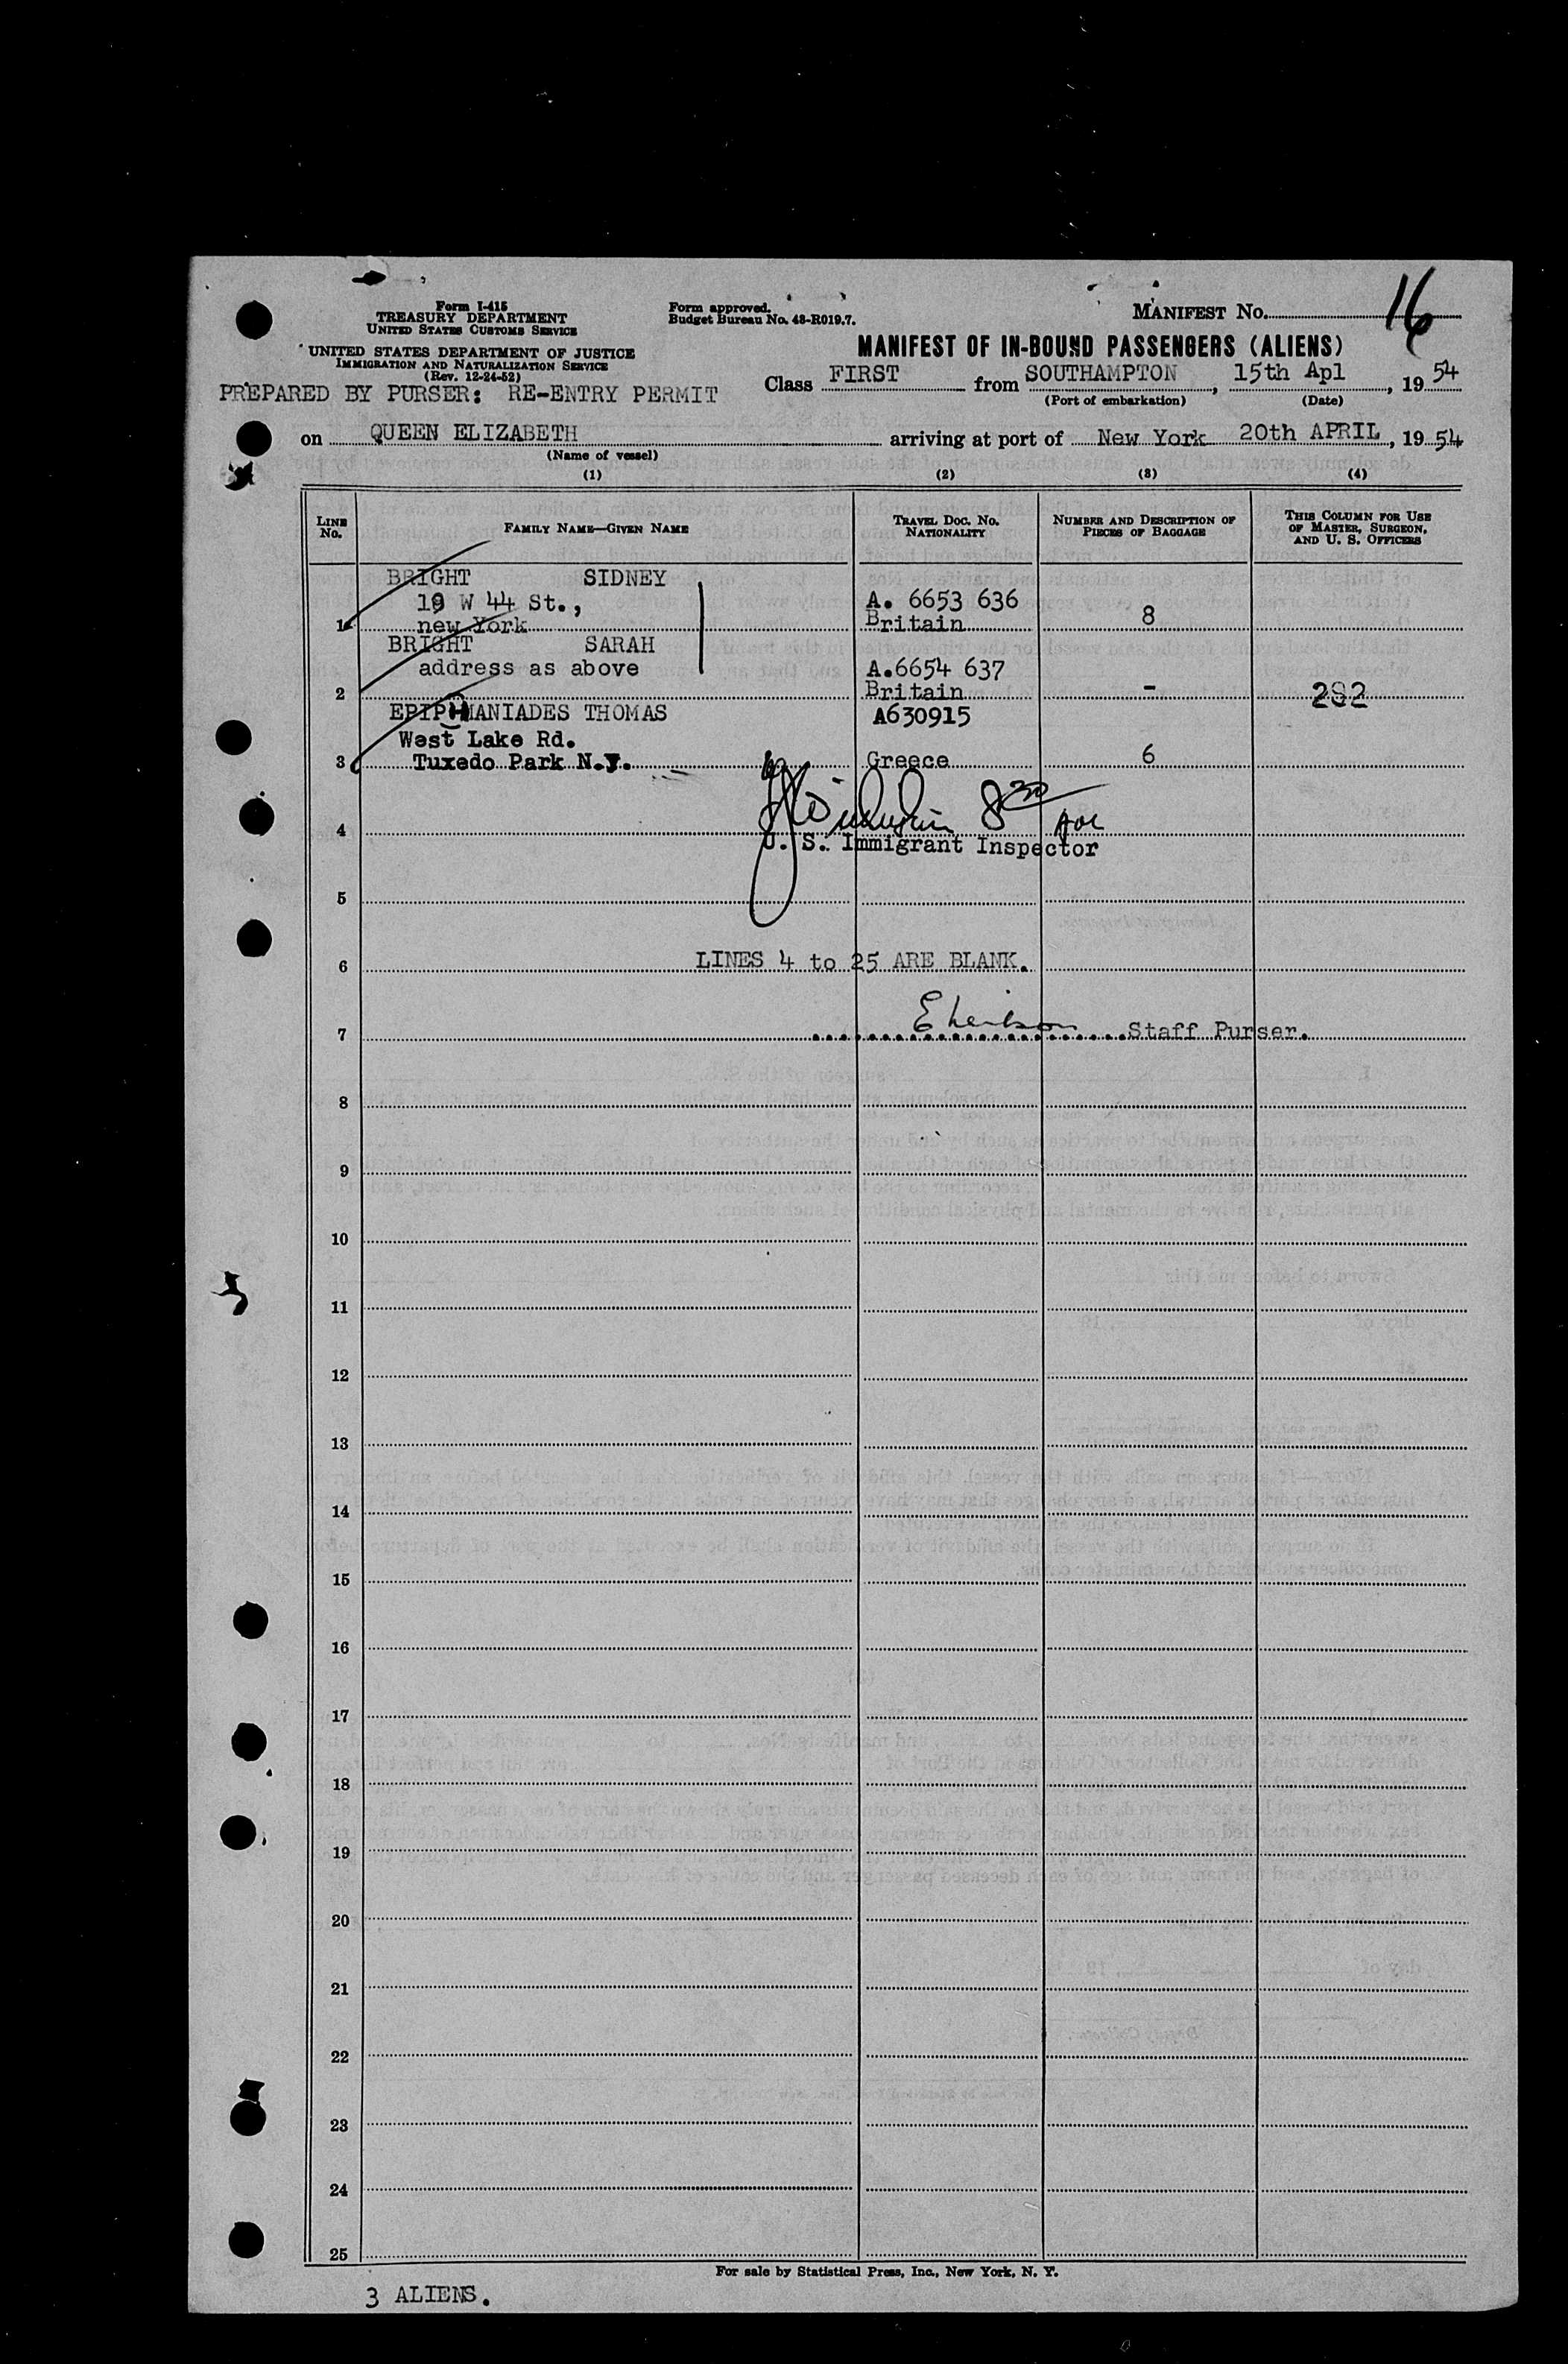 Form I-415
TREASURY DEPARTMENT
UNITED STATES CUSTOMS SERVICE
UNITED STATES DEPARTMENT OF JUSTICE
IMMIGRATION AND NATURALIZATION SERVICE
(Rev. 12-24-52)
PREPARED BY PURSER: RE-ENTRY PERMIT
Form approved.
Budget Bureau No. 43-R019.7.
MANIFEST No. 16
MANIFEST OF IN-BOUND PASSENGERS (ALIENS)
Class FIRST from SOUTHAMPTON, 15th Apl, 19 54
(Port of embarkation) (Date)
on QUEEN ELIZABETH arriving at port of New York 20th APRIL, 19 54
(Name of vessel)
(1) (2) (3) (4)
LINE No. FAMILY NAME—GIVEN NAME TRAVEL DOC. NO. NATIONALITY NUMBER AND DESCRIPTION OF PIECES OF BAGGAGE THIS COLUMN FOR USE OF MASTER, SURGEON, AND U. S. OFFICERS
BRIGHT SIDNEY
19 W 44 St., A. 6653 636
1 new York Britain 8
BRIGHT SARAH
address as above A.6654 637
2 Britain - 282
EPIPHMANIADES THOMAS A630915
West Lake Rd.
3 Tuxedo Park N.Y. Greece 6
8 30
4
U. S. Immigrant Inspector
5
6 LINES 4 to 25 ARE BLANK.
7 Staff Purser.
8
9
10
11
12
13
14
15
16
17
18
19
20
21
22
23
24
25
For sale by Statistical Press, Inc., New York, N. Y.
3 ALIENS.